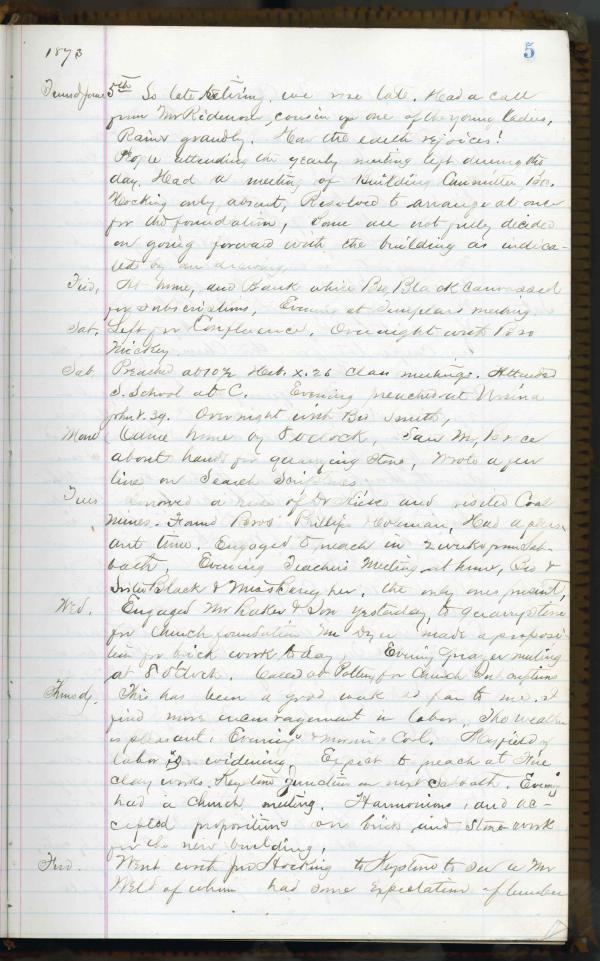 1873
5
Thursd June 5th So late retiring, we rose late. Had a call
from Mr Ridenour, cousin of one of the young ladies,
Rains grandly. How the earth rejoices!
People attending the yearly meeting left during the
day. Had a meeting of Building Committee Bro.
Hocking only absent, Resolved to arrange at once
for the foundation, Some are not fully decided
on going forward with the building as indica-
ted by our drawing.
Frid. At home, and Bank while Bro Black canvassed
for subscriptions, Evening at Templars meeting
Sat. Left for Confluence. Over night with Bro
Mickey.
Sab Preached at 10½ Heb. X. 26 Class meeting. Attended
S. School at C. Evening preached at Ursina
John V. 39. Over night with Bro Smith,
Mond Came home by 8 oclock, Saw Mr,
about hands for quarrying stone, wrote a few
lines on Search Scriptures
Tues a horse of Dr and visited Coal
mines. Found Bros Phillips Holeman, Had a pleas-
ant time. Engaged to preach in 2 weeks from Sab-
bath, Evening Teachers Meeting at home, Bro &
Sister Black & Miss the only ones present,
Wed. Engaged Mr Baker & Son yesterday, to quarry stone
for Church foundation Mr Dyer made a proposi-
tion for brick work to day, Evening prayer meeting
at 8 O'clock. Called at Pottery for Church Subscriptions
Thursdy. This has been a good week so far to me. I
find more encouragement in labor, The weather
is pleasant, Evenings & mornings Cool. My field of
labor is widening, Expect to preach at Fire
clay works, Keystone Junction on next Sabbath. Eveng
had a church meeting. Harmonious, and ac-
cepted propositions on brick and stone work
for the new building,
Frid. Went with Jno Hocking to Keystone to see a Mr
Weld of whom had some expectation of lumber